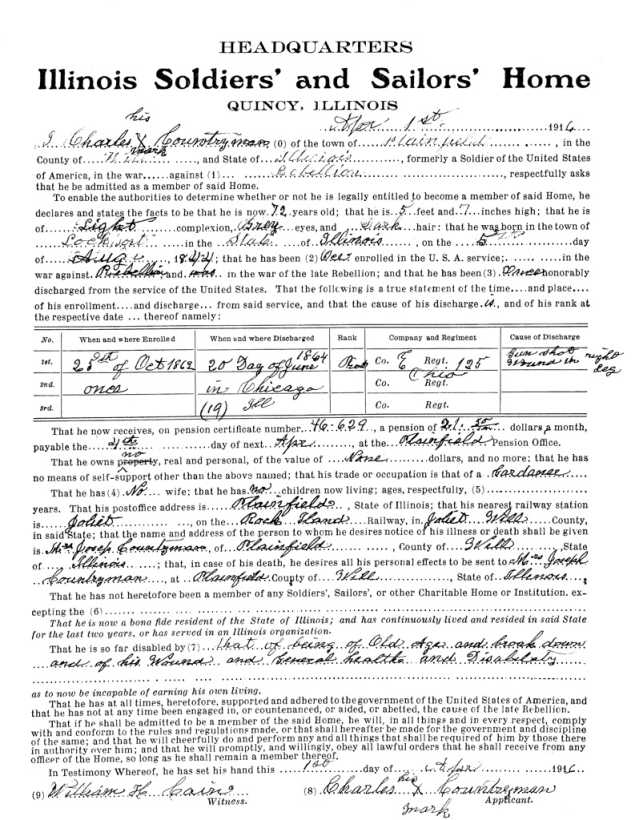 HEADQUARTERS
Illinois Soldiers' and Sailors' Home
QUINCY, ILLINOIS
Apr 1st 1916
his
I, Charles X Countryman (0) of the town of Plainfield, in the
mark
County of Will, and State of Illinois, formerly a Soldier of the United States
of America, in the war against (1) Rebellion, respectfully asks
that he be admitted as a member of said Home.
To enable the authorities to determine whether or not he is legally entitled to become a member of said Home, he
declares and states the facts to be that he is now 72 years old; that he is 5 feet and 7 inches high; that he is
of Light complexion, Grey eyes, and Dark hair: that he was born in the town of
Lockport in the State of Illinois, on the 5 day
of Aug, 1844; that he has been (2) Once enrolled in the U. S. A. service; in the
war against Rebellion and was in the war of the late Rebellion; and that he has been (3) Once honorably
discharged from the service of the United States. That the following is a true statement of the time and place
of his enrollment and discharge from said service, and that the cause of his discharge is, and of his rank at
the respective date thereof namely:
No. When and where Enrolled When and where Discharged Rank Company and Regiment Cause of Discharge
1st. 25th of Oct 1862 20 Day of June 1864 Co. E Regt. 125 Gun shot Wound in right leg
2nd. once in Chicago Co. Ohio Regt.
3rd. (19) Ill Co. Regt.
That he now receives, on pension certificate number 46-629, a pension of 21.50 dollars a month,
payable the 4th day of next Apr, at the Plainfield Pension Office.
no
That he owns property, real and personal, of the value of None dollars, and no more: that he has
no means of self-support other than the above named; that his trade or occupation is that of a Gardaner
That he has (4) No wife: that he has no children now living; ages, respectfully, (5)
years. That his postoffice address is Plainfield, State of Illinois; that his nearest railway station
is Joliet, on the Rock Iland Railway, in Joliet Will County,
in said State; that the name and address of the person to whom he desires notice of his illness or death shall be given
is Mrs Joseph Countryman, of Plainfield, County of Will, State
of Illinois; that, in case of death, he desires all his personal effects to be sent to Mrs Joseph
Countryman, at Plainfield County of Will, State of Illinois
That he has not heretofore been a member of any Soldiers', Sailors', or other Charitable Home or Institution. ex-
cepting the (6)
That he is now a bona fide resident of the State of Illinois; and has continuously lived and resided in said State
for the last two years, or has served in an Illinois organization.
That he is so far disabled by (7) that of being of Old Age and break down
and of his Wound and General health and Disability
as to now be incapable of earning his own living.
That he has at all times, heretofore, supported and adhered to the government of the United States of America, and
that he has not at any time been engaged in, or countenanced, or aided, or abetted, the cause of the late Rebellion.
That if he shall be admitted to be a member of the said Home, he will, in all things and in every respect, comply
with and conform to the rules and regulations made, or that shall hereafter be made for the government and discipline
of the same; and that he will cheerfully do and perform any and all things that shall be required of him by those there
in authority over him; and that he will promptly, and willingly, obey all lawful orders that he shall receive from any
officer of the Home, so long as he shall remain a member thereof.
In Testimony Whereof, he has set his hand this 1st day of Apr 1916
his
(9) William H Cain (8) Charles X Countryman
Witness. Applicant.
mark